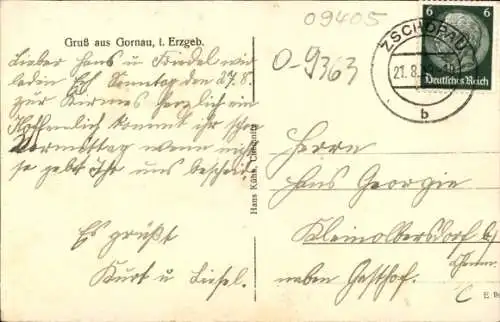 09405
O-9363
Gruß aus Gornau, i. Erzgeb.
Lieber Hans u Friedel wir
laden Euch Sonntag den 27.8.
zur Kirmes herzlich ein
Hoffentlich kommt ihr schon
Vormittag wenn nicht
so gebt Ihr uns Bescheid.
Es grüßt
Kurt u Liesel.
Hans Kühn, Chemnitz
ZSCHOPAU
21.8.
b
6 6
Deutsches Reich
Herrn
Hans Georgie
Kleinolbersdorf b/
Chemn.
neben Gasthof.
C